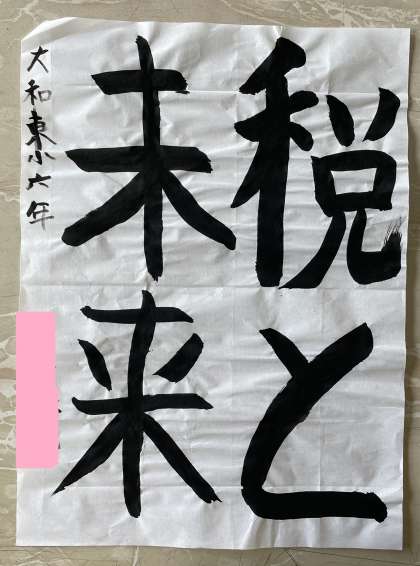 税と
未来
大和東小六年